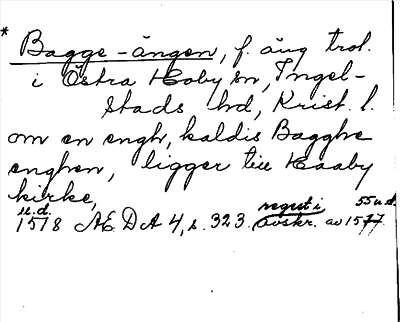 * Bagge-ängen, f. äng trol.
i Östra Hoby sn, Ingel-
stads hd, Krist. l.
om en engh, kaldis Bagghe
enghen, ligger till Haaby
kirke,
u.d. regest i 55 u.d.
1518 ÆDA 4, s. 323. Avskr. av 1577.